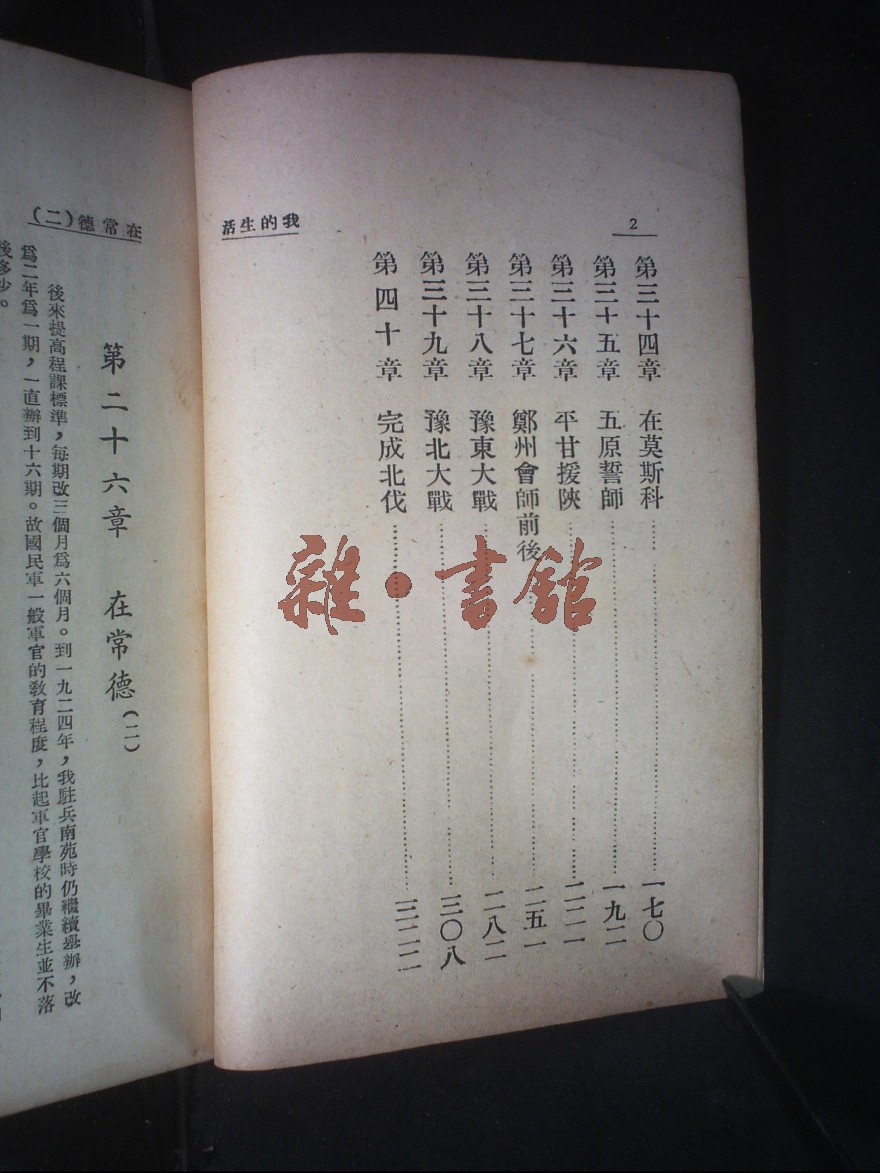 2
我的生活
第三十四章　在莫斯科……一七〇
第三十五章　五原誓師……一九二
第三十六章　平甘援陝……二二一
第三十七章　鄭州會師前後……二五一
第三十八章　豫東大戰……二八二
第三十九章　豫北大戰……三〇八
第四十章　完成北伐……三二二
在常德(二)
第二十六章　在常德(二)
後來提高程課標準，每期改三個月爲六個月。到一九二四年，我駐兵南苑時仍繼續舉辦，改
爲二年爲一期，一直辦到十六期。故國民軍一般軍官的教育程度，比起軍官學校的畢業生並不落
後多少。
雜·書館